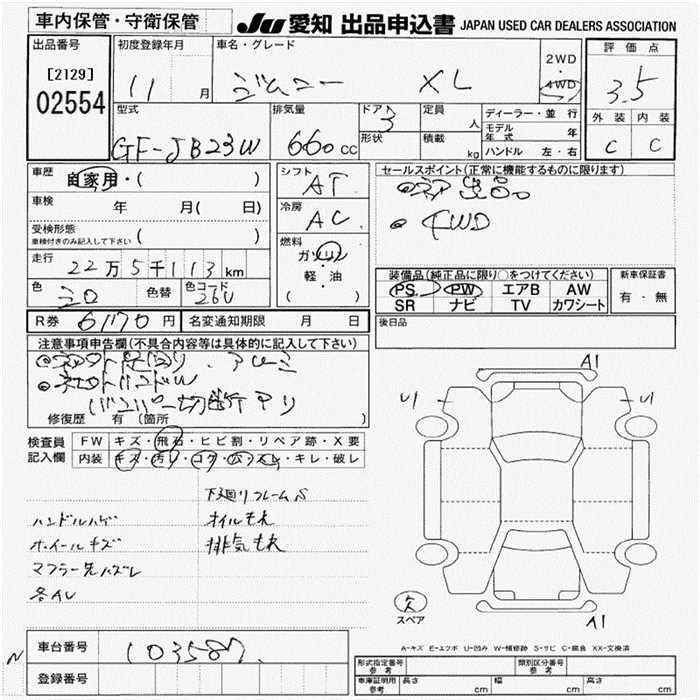 車内保管・守衛保管
JU 愛知 出品申込書 JAPAN USED CAR DEALERS ASSOCIATION
出品番号
[2129]
02554
初度登録年月
11 月
車名・グレード
ジムニー XL
2WD
・
4WD
評価点
3.5
外装 内装
C C
型式
GF-JB23W
排気量
660 cc
ドア
3
形状
定員
人
積載
kg
ディーラー・並行
モデル年式 年
ハンドル 左・右
車歴
自家用・( )
車検
年 月( 日)
受検形態
車検付きのみ記入して下さい ( )
走行
22万5千113km
色 色替 色コード
26U
R券 6170円 名変通知期限 月 日
シフト
AT
冷房
AC
燃料
ガソリン
軽・油
( )
セールスポイント(正常に機能するものに限ります)
4WD
装備品(純正品に限り○をつけてください)
PS PW エアB AW
SR ナビ TV カワシート
新車保証書
有・無
後日品
注意事項申告欄(不具合内容等は具体的に記入して下さい)
アルミ
バンパー切断アリ
修復歴 有 (箇所 )
検査員
記入欄
FW キズ・飛石・ヒビ割・リペア跡・X要
内装 キズ・汚レ・コゲ・穴・スレ・キレ・破レ
下廻リフレームS
ハンドルハゲ オイルモレ
ホイールキズ 排気モレ
マフラー先ハズレ
各AU
A1
U1 U1
スペア
A1
A-キズ E-エクボ U-凹み W-補修跡 S-サビ C-腐食 XX-交換済
N
車台番号 103587
登録番号
型式指定番号
参考
類別区分番号
参考
車庫証明用
参考
長さ cm 幅 cm 高さ cm